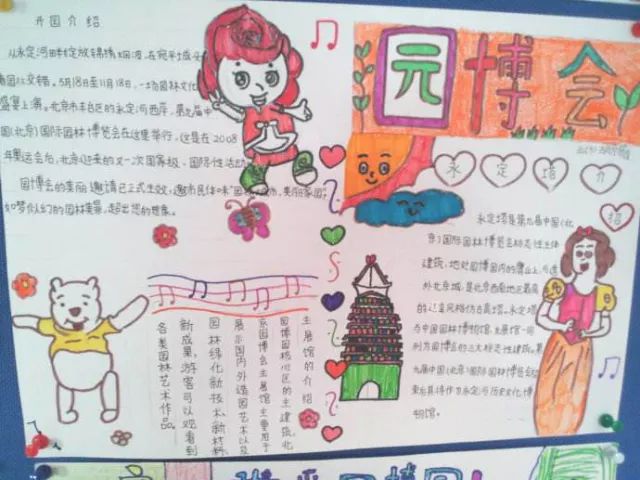 园博会
开园介绍
从永定河畔绽放锦绣
5月18日至11月18日,一场园林文化
盛宴上演。北京市丰台区的永定河西岸,第九届中
国(北京)国际园林博览会在这里举行,这是在2008
年奥运会后,北京迎来的又一次国家级、国际性活动
园博会的美丽邀请已正式生效,邀市民体味"园
如梦似幻的园林美景,超出您的想象。
永定塔介绍
永定塔是第九届中国(北
京)国际园林博览会标志性主体
建筑,地处园博园内的鹰山上,与
北京城,是北京西南地区最高
的辽金风格仿古高塔。永定塔
与中国园林博物馆、主展馆一同
列为园博会的三大标志性建筑。第
九届中国(北京)国际园林博览会结
束后其将作为永定河历史文化博
物馆。
主展馆的介绍
园博园核心区的主建筑,北
京园博会主展馆主要用于
展示国内外造园艺术以及
园林绿化新技术、新材料、
新成果,游客可以观看到
各类园林艺术作品。